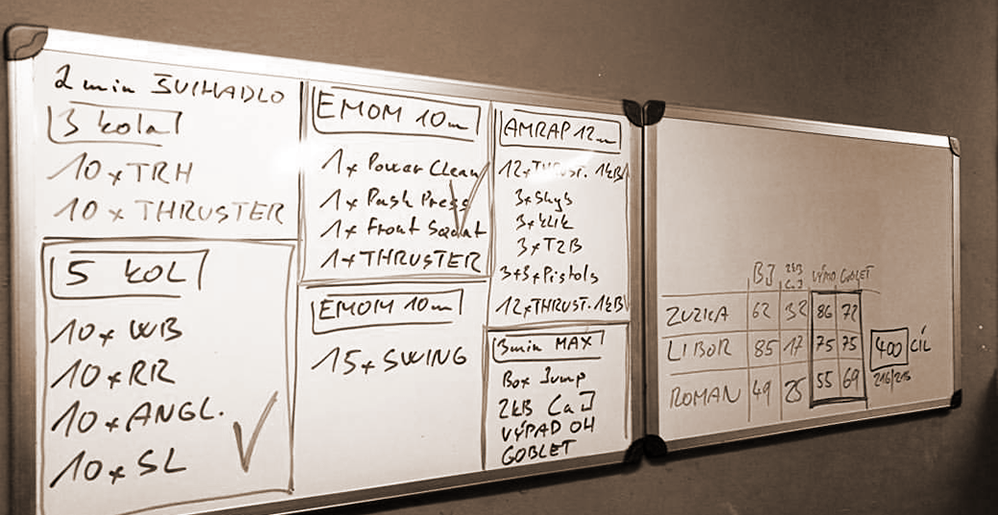 2 min ŠVIHADLO
3 kola
10x TRH
10x THRUSTER
5 KOL
10x WB
10x RR
10x ANGL.
10x SL
EMOM 10m
1x Power Clean
1x Push Press
1x Front Squat
1x THRUSTER
EMOM 10m
15x SWING
AMRAP 12m
12x THRUST. 1KB
3x Shys
3x klik
3x T2B
3+3x Pistols
12x THRUST. 1KB
3min MAX
Box Jump
2KB CaJ
VÝPAD OH
GOBLET
BJ 2KB CaJ VÝPAD GOBLET
ZUZKA 62 32 86 72
LIBOR 85 17 75 75 400 CÍL
ROMAN 49 25 55 69 216/216